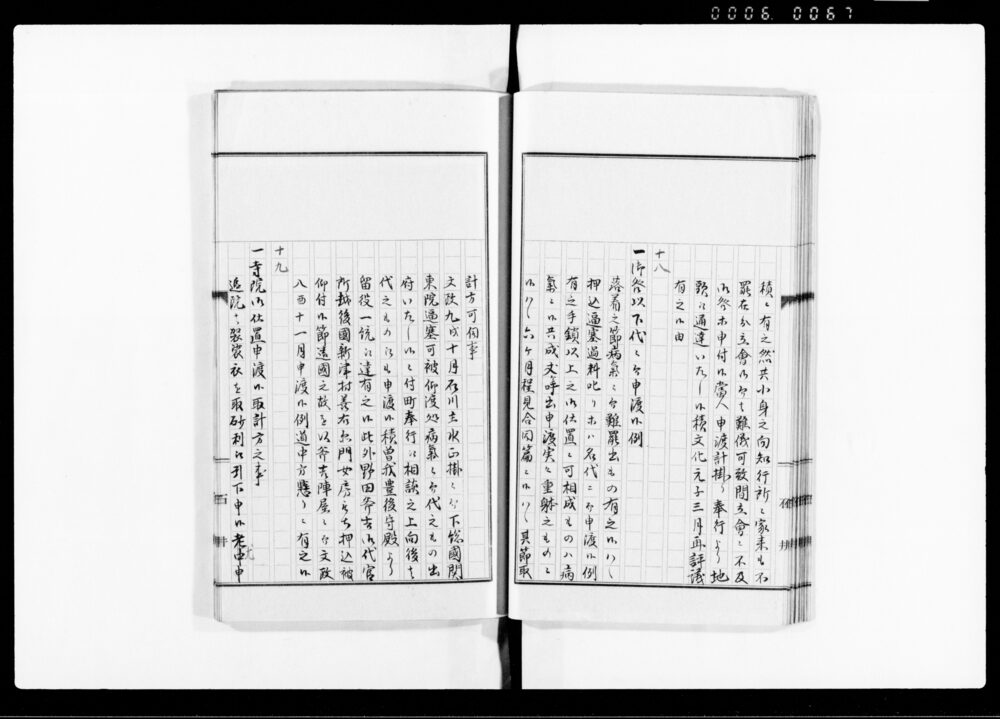 0006 0067
積ニ有之然共小身之向知行所ニ家来も不
罷在分立會にても難儀可致間立會ニ不及
御咎申付候當人申渡計掛り奉行より地
頭江通達いたし候積文化元子三月再評議
有之候由
十八
一御咎以下代ニ而申渡候例
落着之節病氣ニ而難罷出もの有之候ハヽ
押込逼塞過料叱りホハ名代ニ而申渡候例
有之手鎖以上之御仕置ニ可相成ものハ病
氣ニ候共成丈呼出申渡実々重躰之ものニ
候ハヽ六ヶ月程見合同篇ニ候ハヽ其節取
計方可伺事
文政九戌十月石川主水正掛ニ而下総國関
東院逼塞可被仰渡処病氣ニ而代之もの出
府いたし候ニ付町奉行江相談之上向後も
代之もの江も申渡候積曽我豊後守殿より
留役一統江達有之候此外野田斧吉御代官
所越後國新津村善右衛門女房之もち押込被
仰付候節遠國之故を以斧吉陣屋ニ而文政
八酉十一月申渡候例道中方懸りニ有之候
十九
一寺院御仕置申渡候取計方之事
追院ハ袈裟衣を取砂利江引下申候老中申